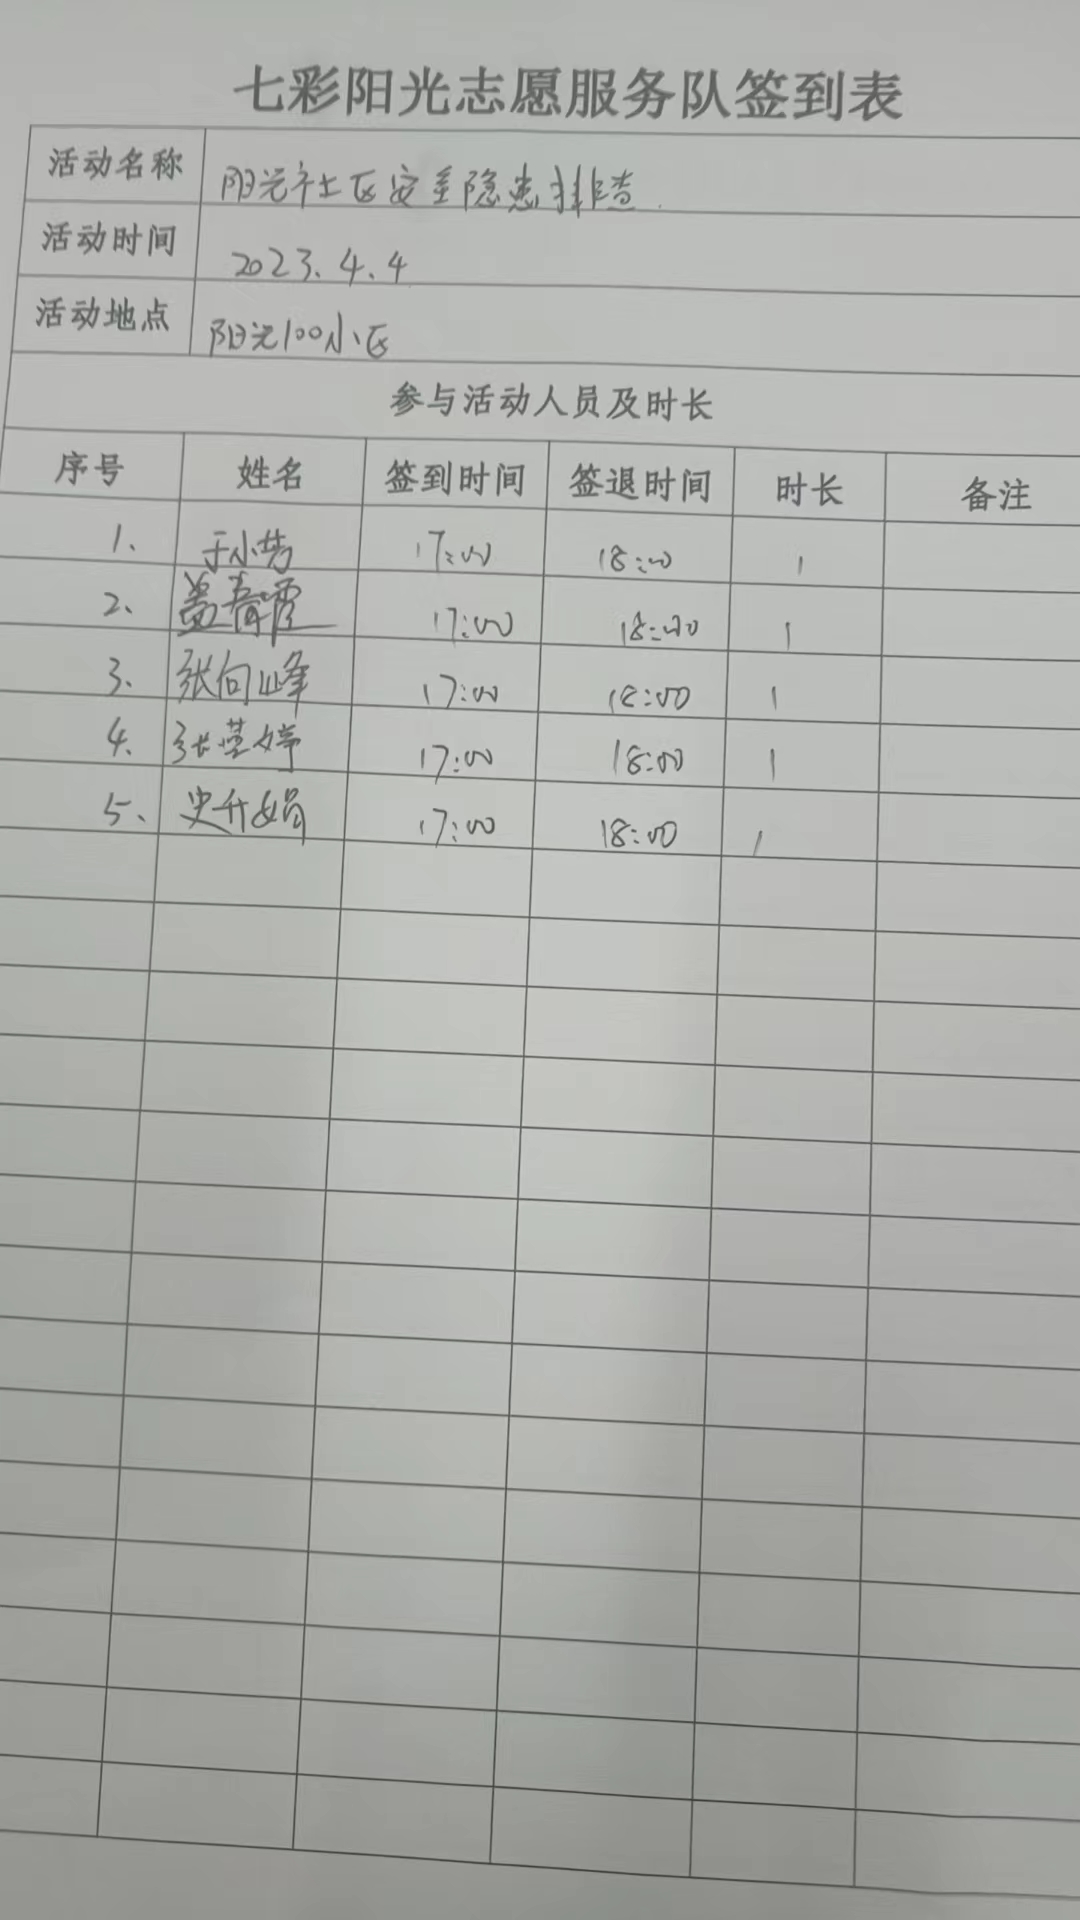 七彩阳光志愿服务队签到表
活动名称 阳光社区安全隐患排查.
活动时间 2023.4.4
活动地点 阳光100小区
参与活动人员及时长
序号 姓名 签到时间 签退时间 时长 备注
1、 于小芳 17:00 18:00 1
2、 盖春霞 17:00 18:00 1
3、 张向峰 17:00 18:00 1
4、 张莹婷 17:00 18:00 1
5、 史升娟 17:00 18:00 1